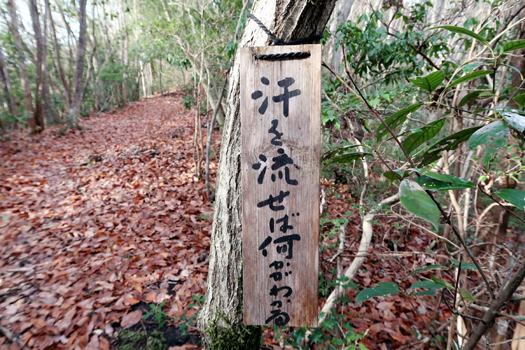 汗を流せば何がわかる